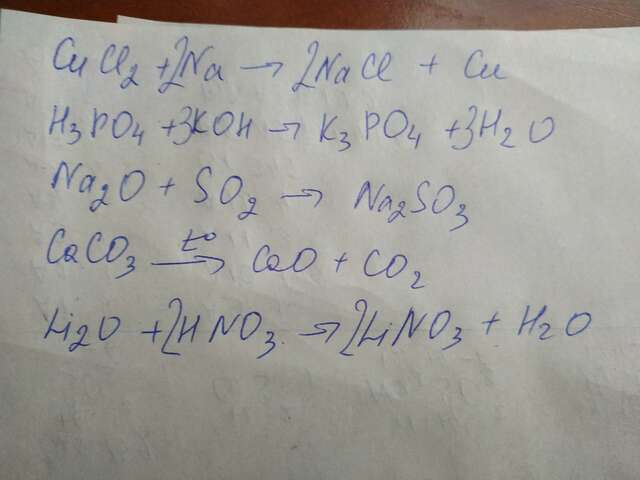 CuCl2 + 2Na → 2NaCl + Cu
H3PO4 + 3KOH → K3PO4 + 3H2O
Na2O + SO2 → Na2SO3
CaCO3 t° → CaO + CO2
Li2O + 2HNO3 → 2LiNO3 + H2O